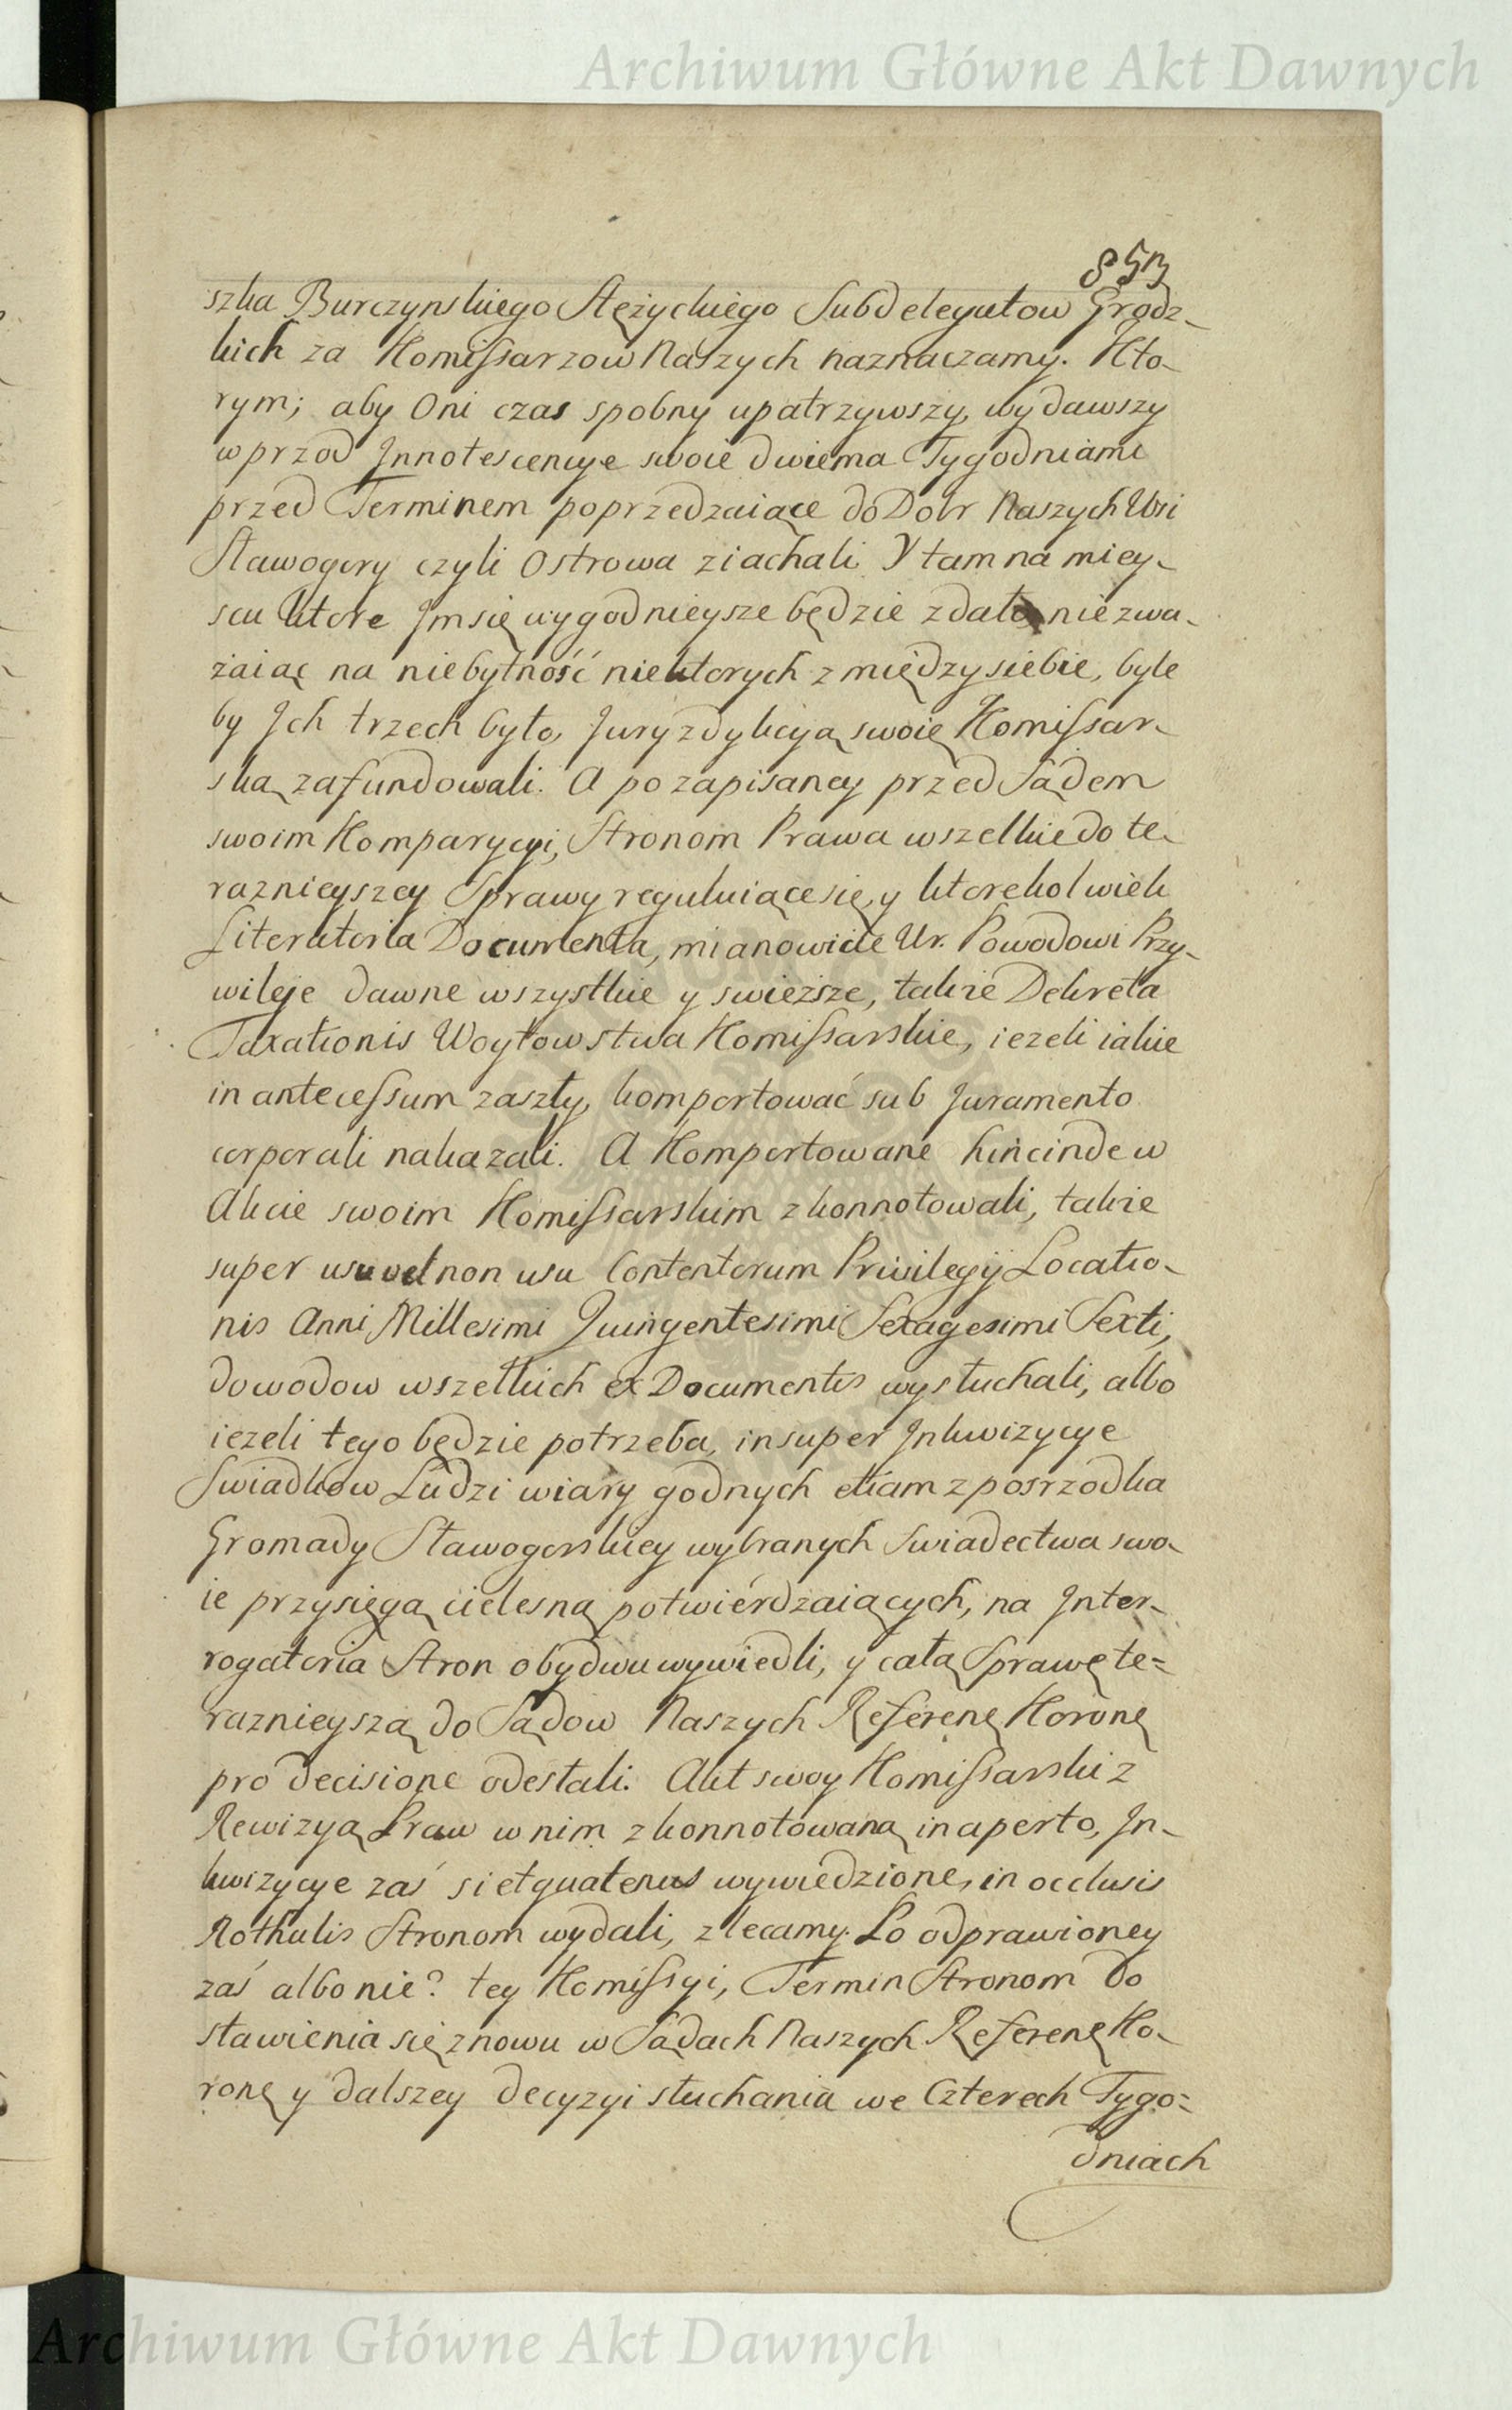 Archiwum Główne Akt Dawnych
853
szka Burczynskiego Stężyckiego Subdelegatow Grodz-
kich za Komissarzow Naszych naznaczamy. Kto-
rym; aby Oni czas spobny upatrzywszy, wydawszy
wprzod Innotescencye swoie dwiema Tygodniami
przed Terminem poprzedzaiące do Dobr Naszych Wsi
Sławogory czyli Ostrowa ziachali. Y tam na miey-
scu ktore Im się wygodnieysze będzie zdało nie zwa-
żaiąc na niebytność niektorych z między siebie, byle
by Ich trzech było, Juryzdykcyą swoię Komissar-
ską zafundowali. A po zapisaney przed Sądem
swoim Komparycyi, Stronom Prawa wszelkie do te-
raznieyszey Sprawy reguluiące się, y ktorekolwiek
Literatoria Documenta, mianowicie Ur. Powodowi Przy-
wileje dawne wszystkie y swieższe, takze Dekreta
Taxationis Woytowstwa Komissarskie, iezeli iakie
in antecessum zaszły, komportować sub Juramento
corporali nakazali. A Komportowane hincinde w
Akcie swoim Komissarskim zkonnotowali, takze
super usu vel non usu Contentorum Privilegij Locatio-
nis Anni Millesimi Quingentesimi Sexagesimi Sexti,
dowodow wszelkich ex Documentis wysłuchali, albo
iezeli tego będzie potrzeba, insuper Inkwizycye
Swiadkow Ludzi wiary godnych etiam z posrzodka
Gromady Sławogorskiey wybranych swiadectwa swo-
ie przysięgą cielesną potwierdzaiących, na Inter-
rogatoria Stron obydwu wywiedli, y całą Sprawę te=
raznieyszą do Sądow Naszych Referenę Koronę
pro decisione odesłali. Akt swoy Komissarski z
Rewizyą Praw w nim zkonnotowaną in aperto, In-
kwizycye zaś si et quatenus wywiedzione, in occlusis
Rothulis Stronom wydali, zlecamy. Po odprawioney
zaś albo nie? tey Komissyi, Termin Stronom do
stawienia się znowu w Sądach Naszych Referenę Ko-
ronę y dalszey decyzyi słuchania we Czterech Tygo=
dniach
Archiwum Główne Akt Dawnych